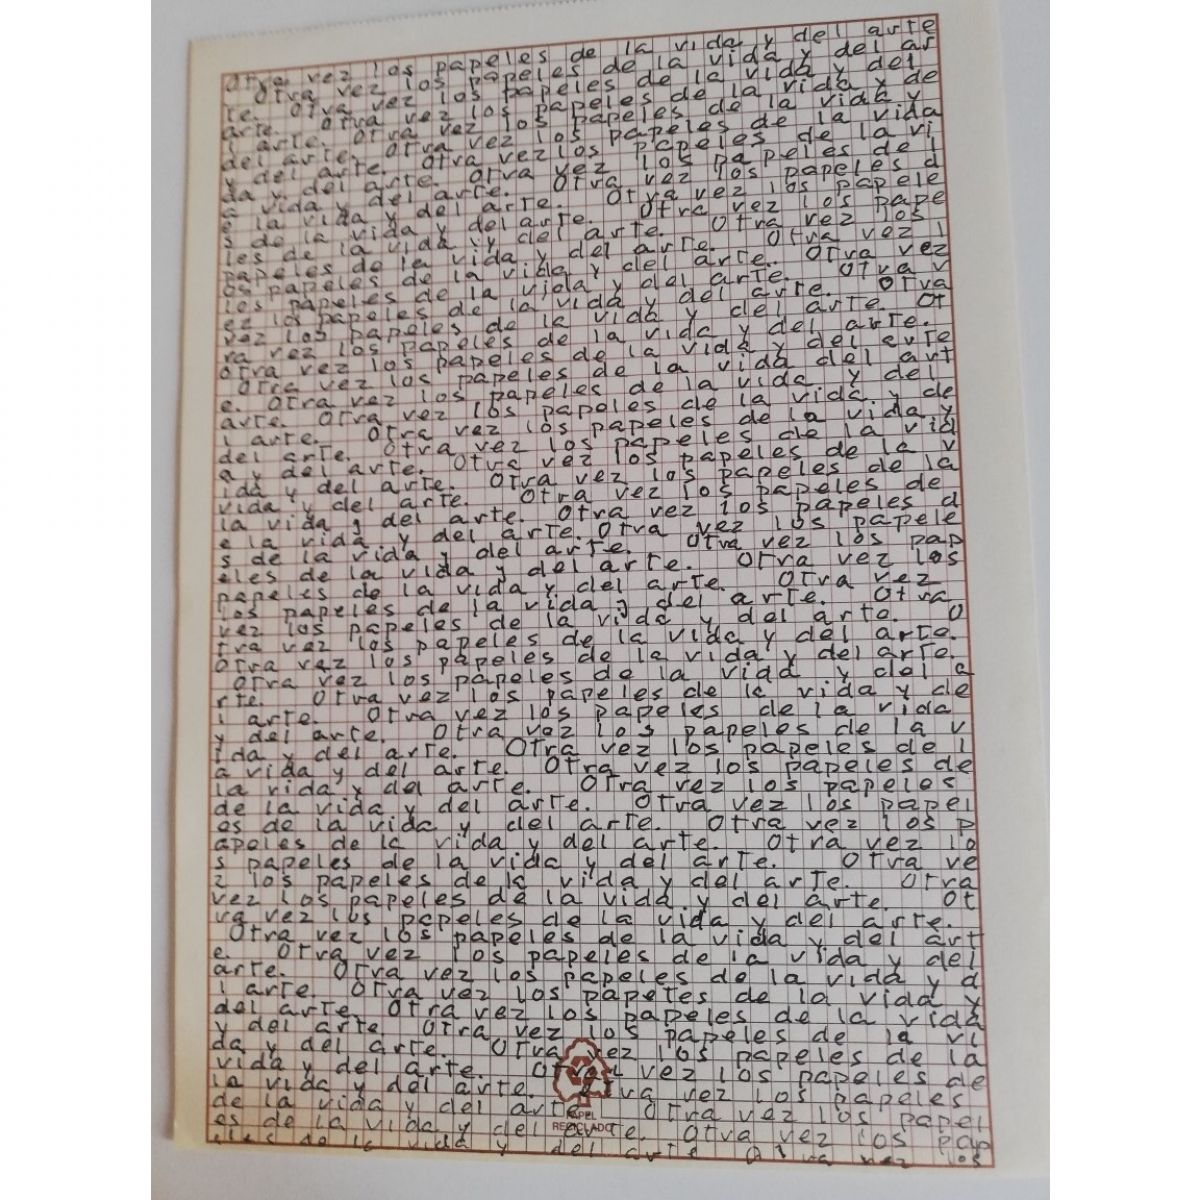 Otra vez los papeles de la vida y del arte
. Otra vez los papeles de la vida y del ar
te. Otra vez los papeles de la vida y del
arte. Otra vez los papeles de la vida y de
l arte. Otra vez los papeles de la vida y
del arte. Otra vez los papeles de la vida
y del arte. Otra vez los papeles de la vi
da y del arte. Otra vez los papeles de l
a vida y del arte. Otra vez los papeles d
e la vida y del arte. Otra vez los papele
s de la vida y del arte. Otra vez los pape
les de la vida y del arte. Otra vez los
papeles de la vida y del arte. Otra vez l
os papeles de la vida y del arte. Otra vez
los papeles de la vida y del arte. Otra v
ez los papeles de la vida y del arte. Otra
vez los papeles de la vida y del arte. Ot
ra vez los papeles de la vida y del arte.
Otra vez los papeles de la vida y del arte
Otra vez los papeles de la vida del art
e. Otra vez los papeles de la vida y del
arte. Otra vez los papeles de la vida y de
l arte. Otra vez los papeles de la vida y
del arte. Otra vez los papeles de la vid
a y del arte. Otra vez los papeles de la v
ida y del arte. Otra vez los papeles de la
vida y del arte. Otra vez los papeles de
la vida y del arte. Otra vez los papeles d
e la vida y del arte. Otra vez los papele
s de la vida y del arte. Otra vez los pap
eles de la vida y del arte. Otra vez los
papeles de la vida y del arte. Otra vez
los papeles de la vida y del arte. Otra
vez los papeles de la vida y del arte. O
tra vez los papeles de la vida y del arte.
Otra vez los papeles de la vida y del arte.
Otra vez los papeles de la vida y del a
rte. Otra vez los papeles de la vida y de
l arte. Otra vez los papeles de la vida
y del arte. Otra vez los papeles de la v
ida y del arte. Otra vez los papeles de l
a vida y del arte. Otra vez los papeles de
la vida y del arte. Otra vez los papeles
de la vida y del arte. Otra vez los papel
es de la vida y del arte. Otra vez los p
apeles de la vida y del arte. Otra vez lo
s papeles de la vida y del arte. Otra ve
z los papeles de la vida y del arte. Otra
vez los papeles de la vida y del arte. Ot
ra vez los papeles de la vida y del arte.
Otra vez los papeles de la vida y del art
e. Otra vez los papeles de la vida y del
arte. Otra vez los papeles de la vida y d
l arte. Otra vez los papeles de la vida y
del arte. Otra vez los papeles de la vida
y del arte. Otra vez los papeles de la vi
da y del arte. Otra vez los papeles de la
vida y del arte. Otra vez los papeles de
la vida y del arte. Otra vez los papeles
de la vida y del arte. Otra vez los papel
es de la vida y del arte. Otra vez los pap
eles de la vida y del arte Otra vez los
PAPEL
RECICLADO